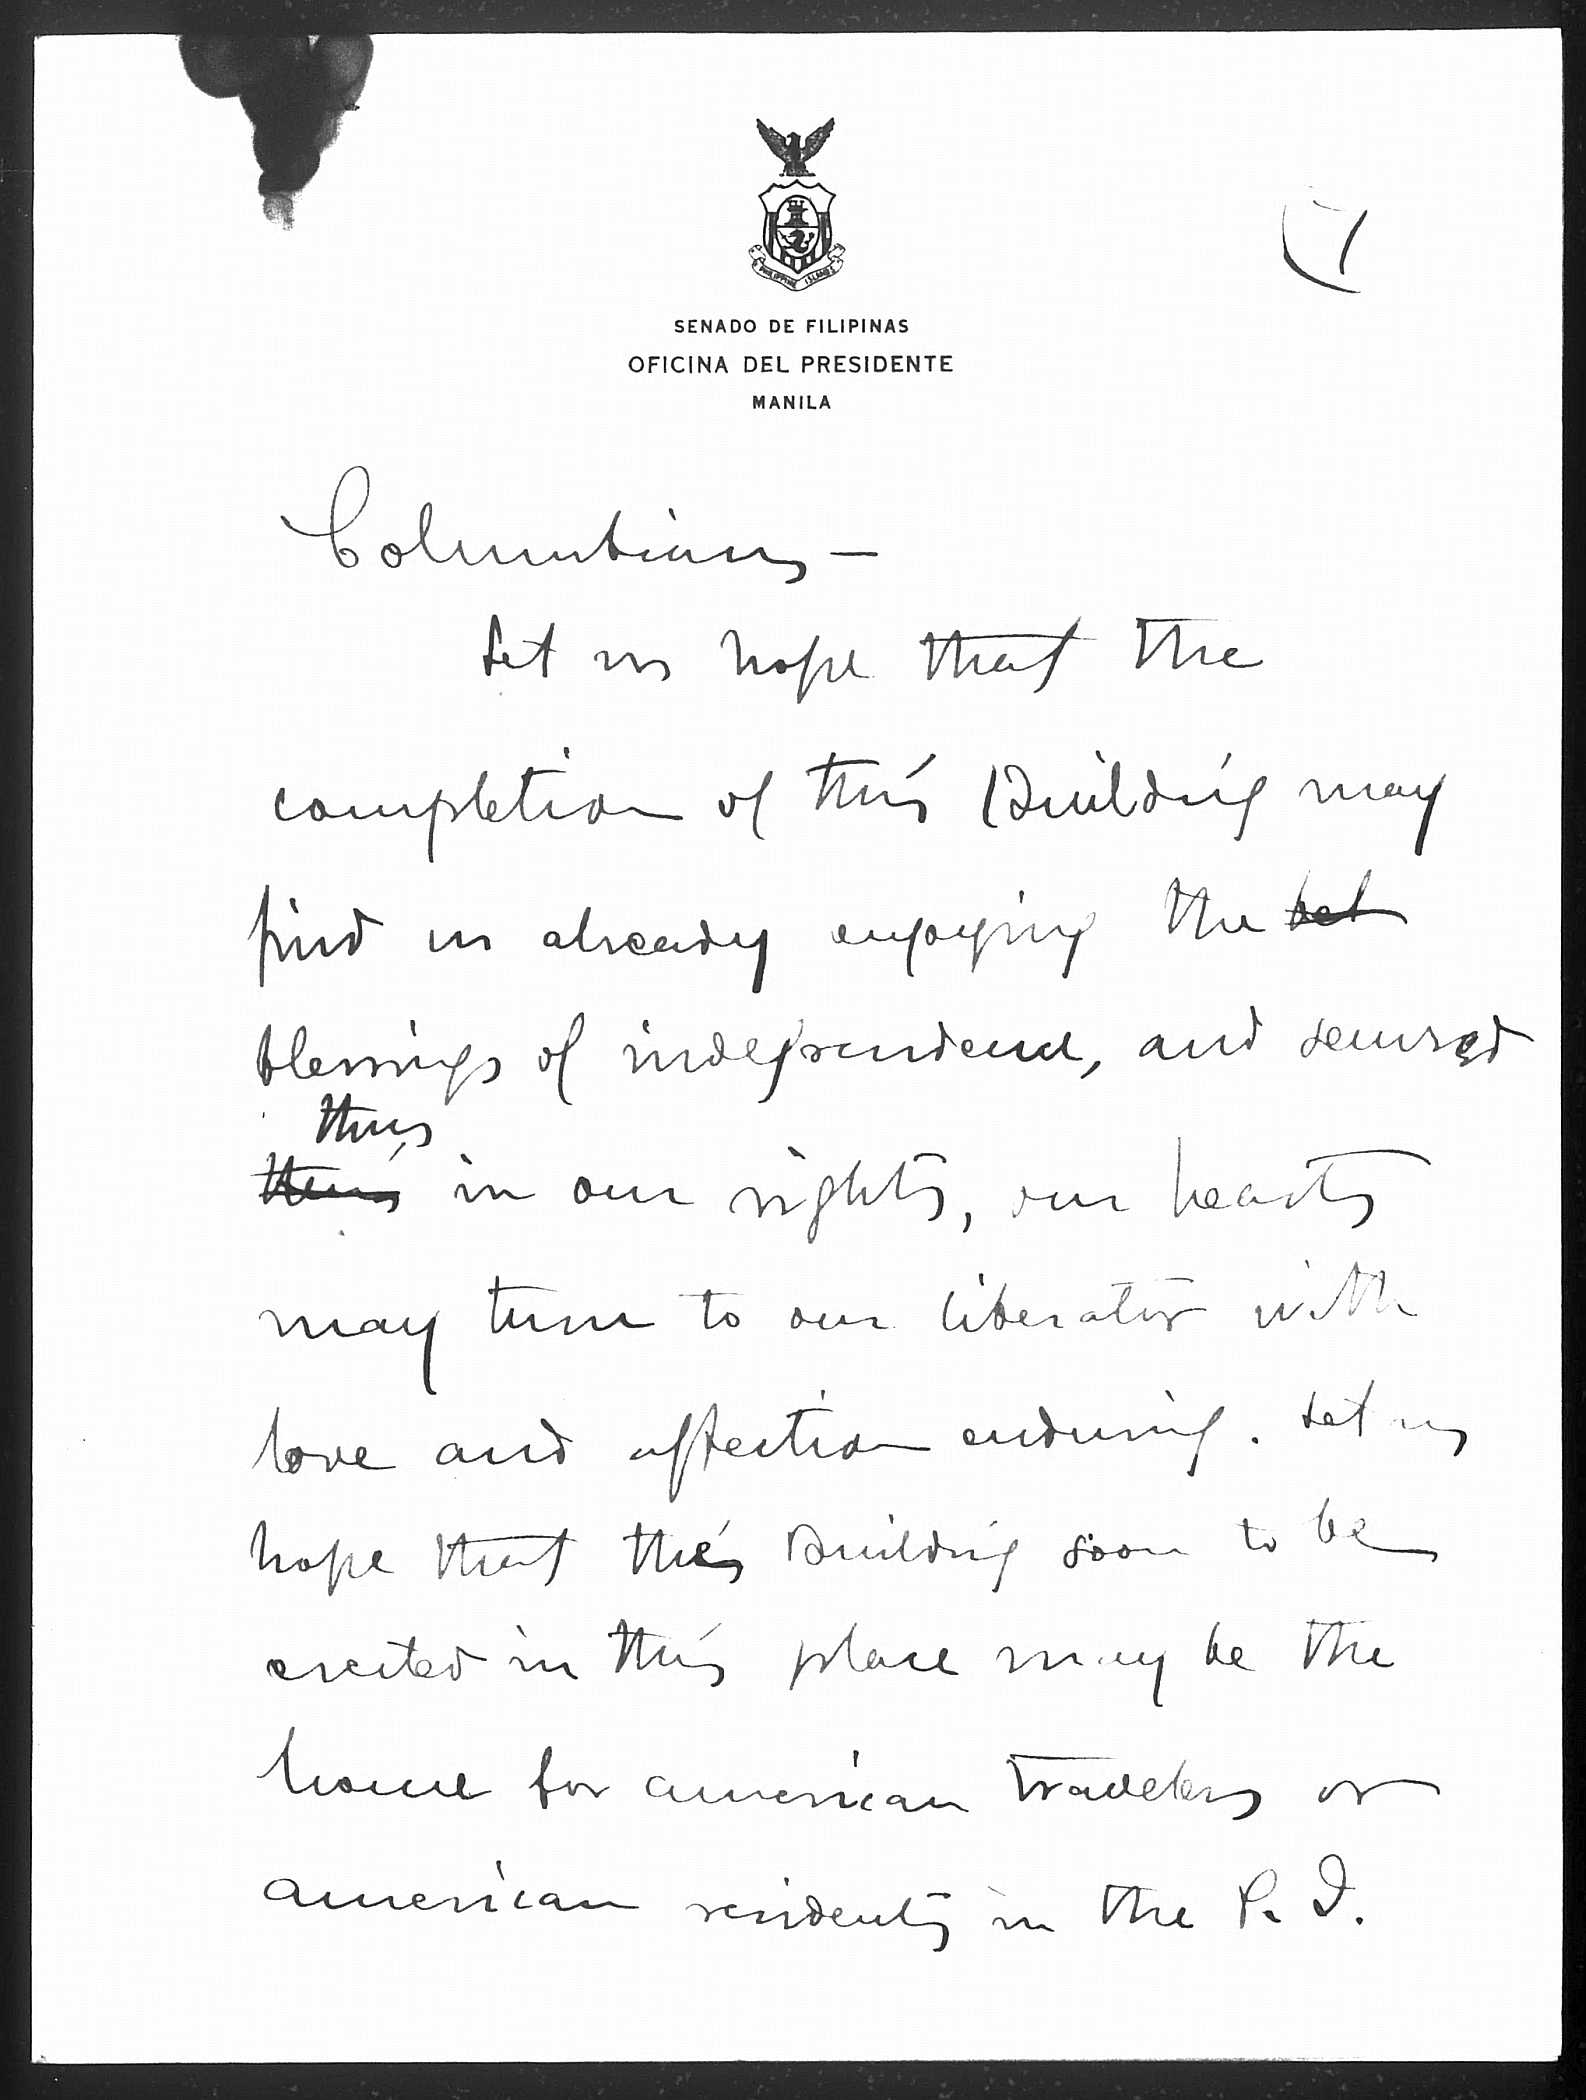 PHILIPPINE ISLANDS
SENADO DE FILIPINAS
OFICINA DEL PRESIDENTE
MANILA
Columbians —
Let us hope that the
completion of this Building may
find us already enjoying the
blessings of independence, and secured
thus
in our rights, our hearts
may turn to our liberator with
love and affection enduring. Let us
hope that this Building soon to be
erected in this place may be the
home for american travelers or
american residents in the P. I.